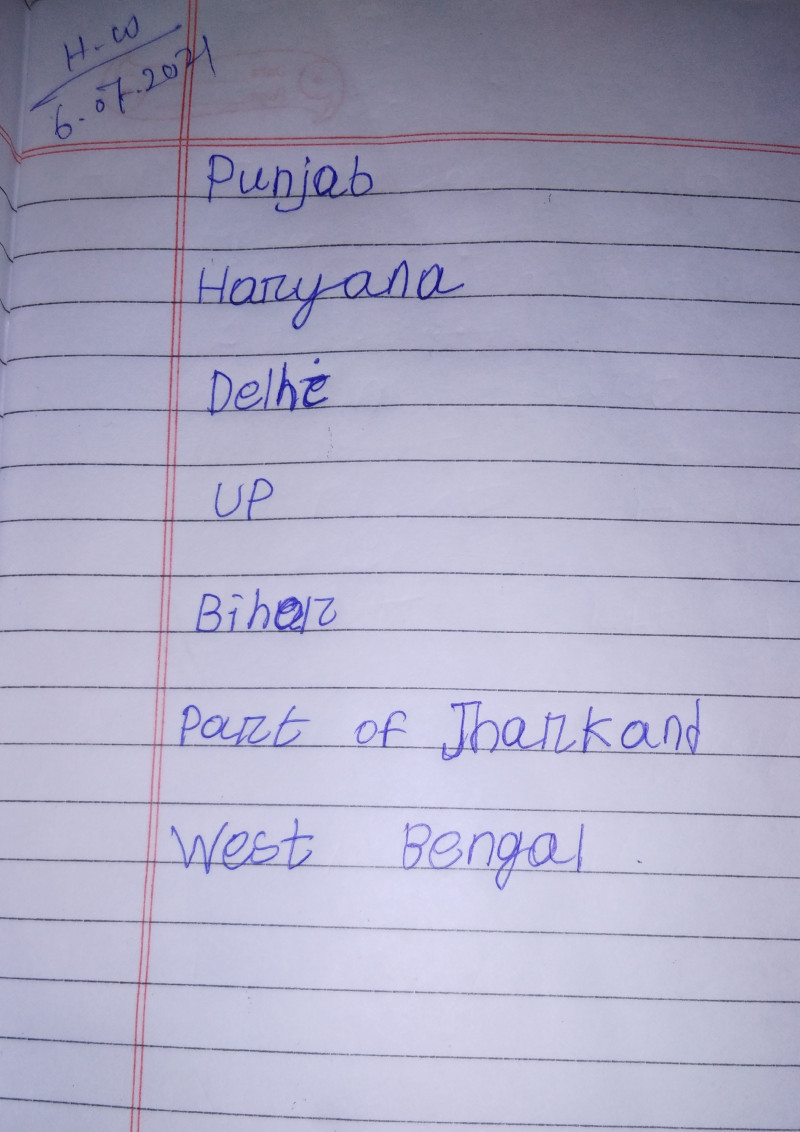 H-W
6-07-2021
Punjab
Haryana
Delhi
UP
Bihar
Part of Jharkand
West Bengal.